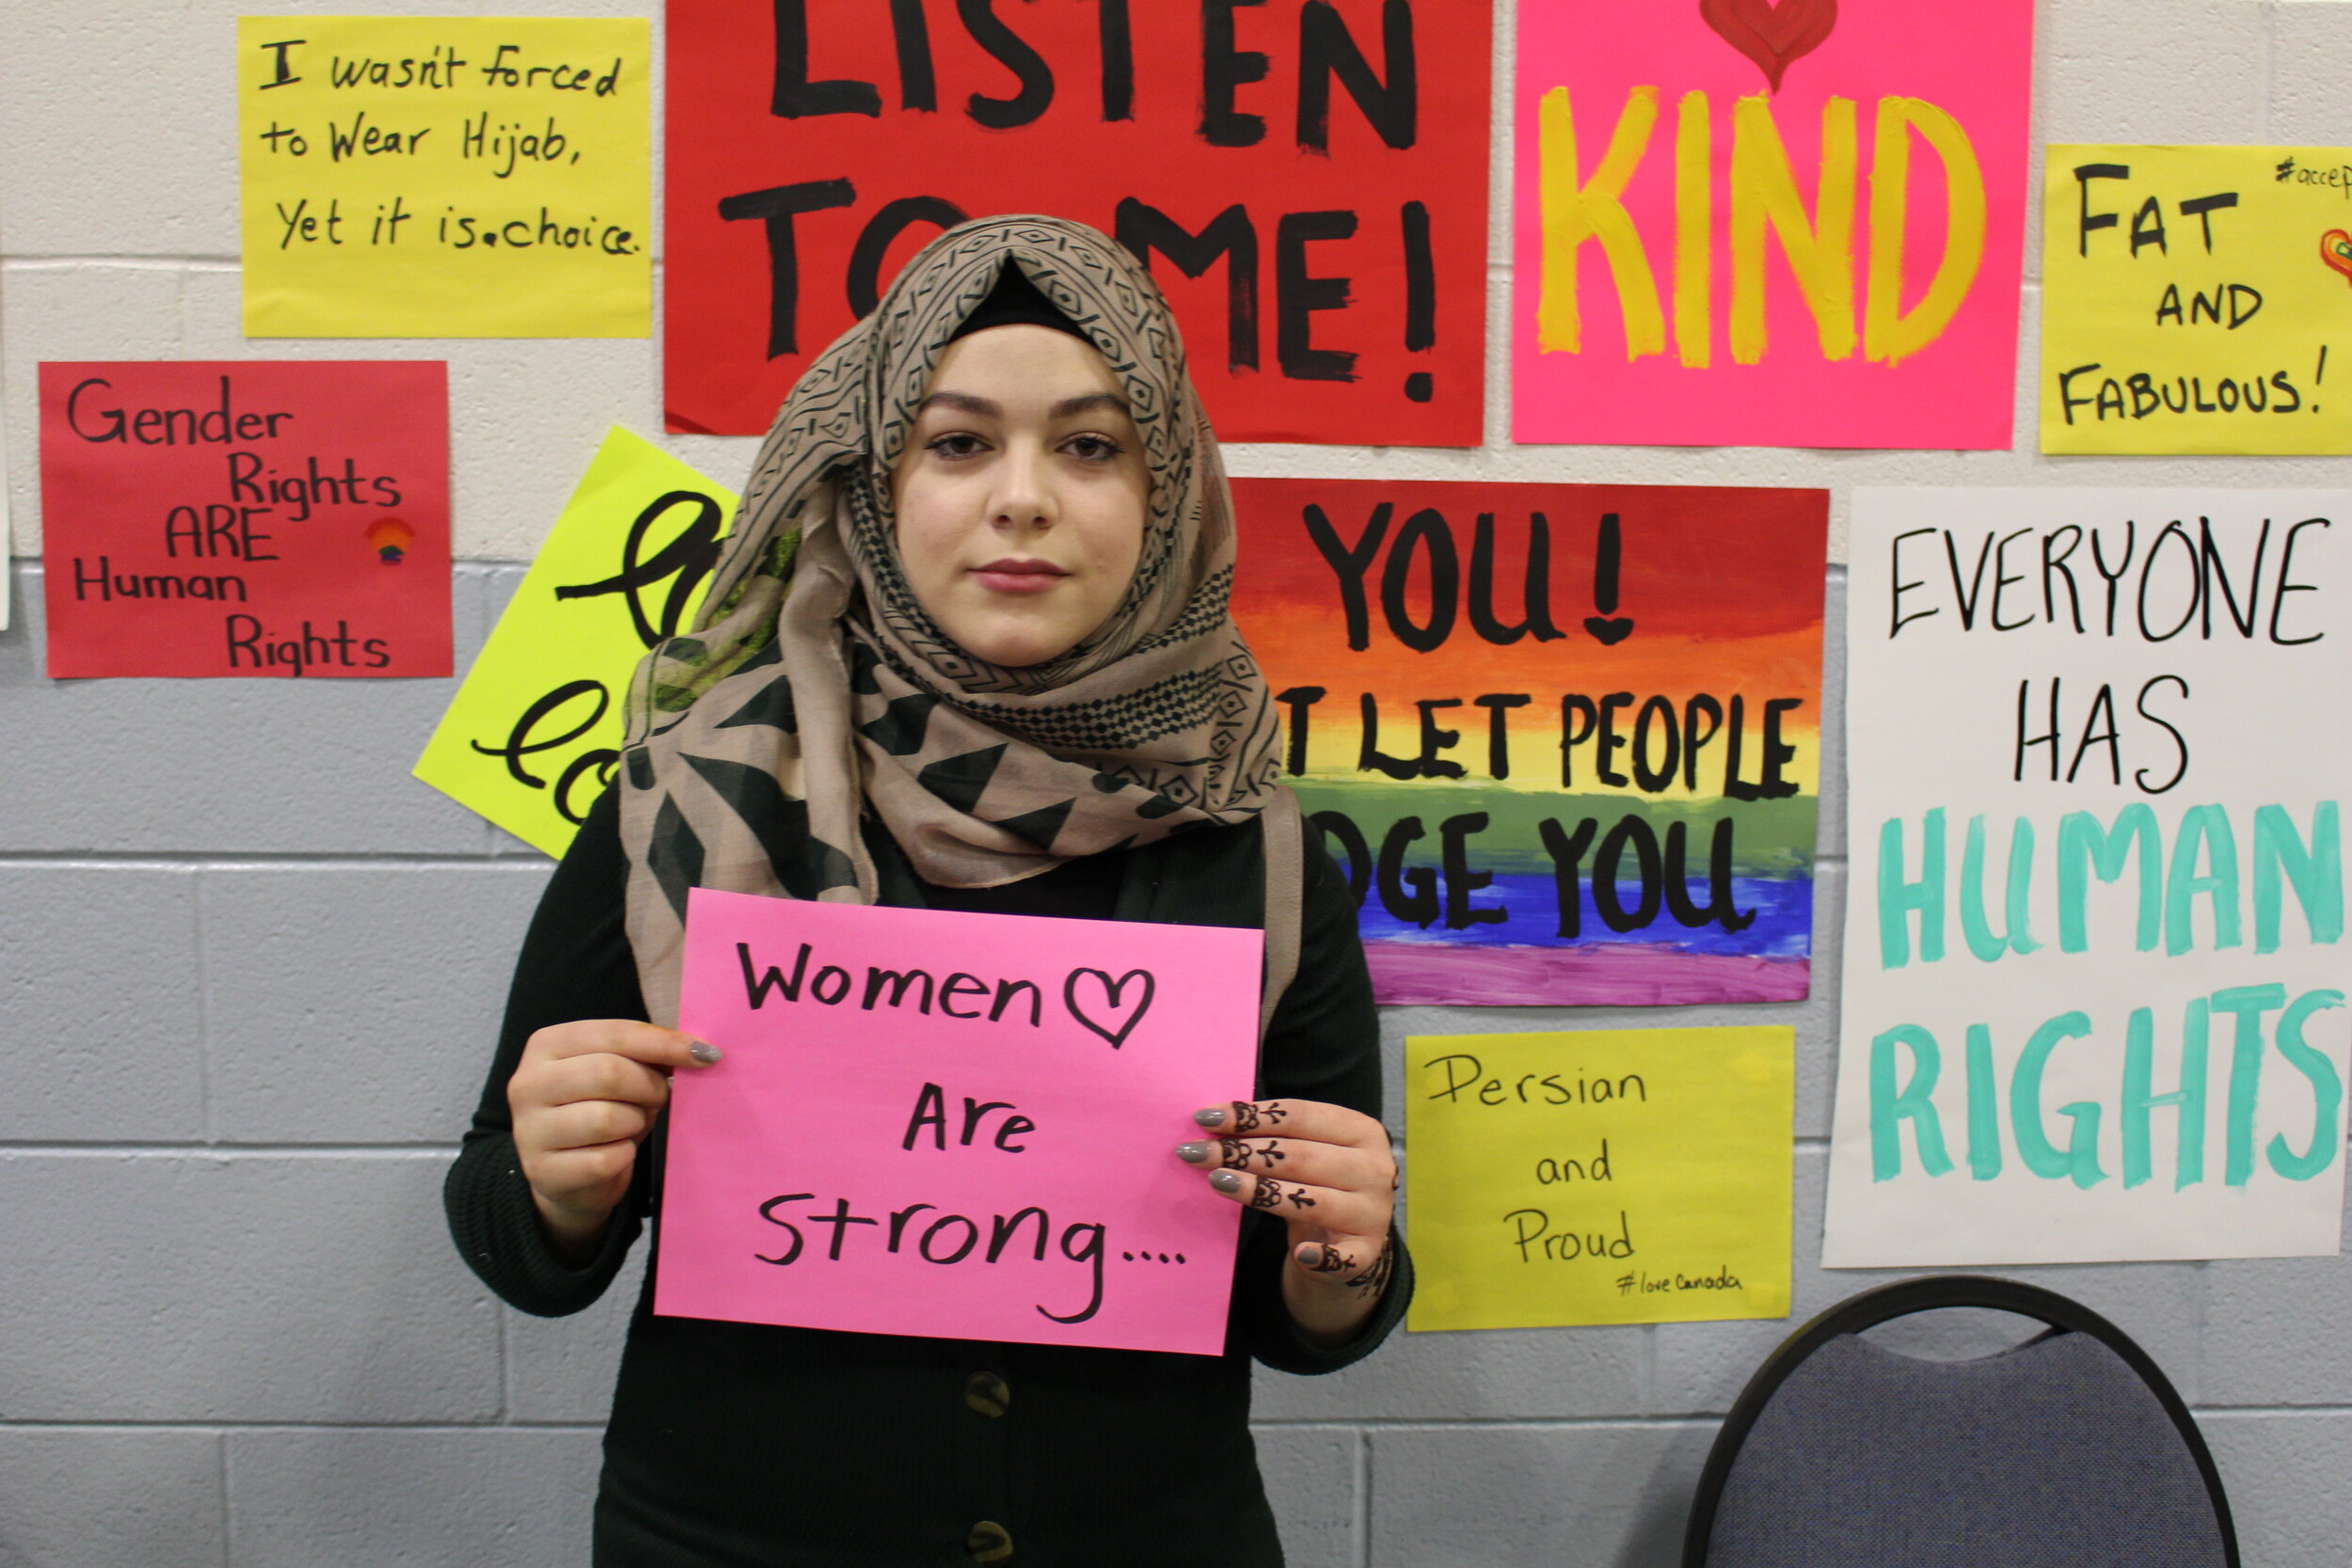 I wasn't forced
to Wear Hijab,
Yet it is.choice.
LISTEN
TO ME!
KIND
#accep
FAT
AND
FABULOUS!
Gender
Rights
ARE
Human
Rights
YOU!
LET PEOPLE
YOU
EVERYONE
HAS
HUMAN
RIGHTS
Women
Are
Strong....
Persian
and
Proud
#love Canada